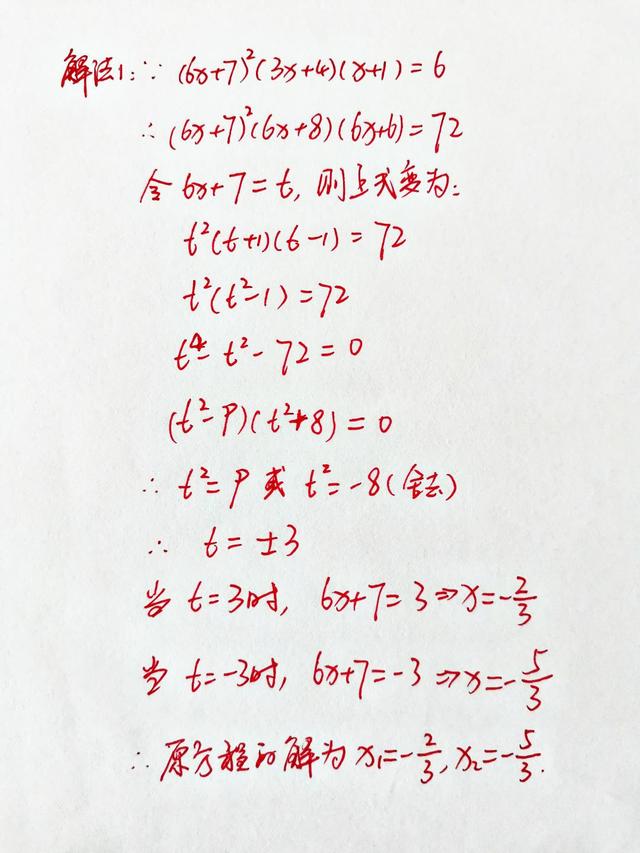 解法1:∵ (6x+7)²(3x+4)(x+1)=6
∴ (6x+7)²(6x+8)(6x+6)=72
令 6x+7=t, 则上式变为:
t²(t+1)(t-1)=72
t²(t²-1)=72
t⁴-t²-72=0
(t²-9)(t²+8)=0
∴ t²=9 或 t²=-8(舍去)
∴ t=±3
当 t=3时, 6x+7=3⇒x=-2/3
当 t=-3时, 6x+7=-3⇒x=-5/3
∴ 原方程的解为 x₁=-2/3, x₂=-5/3.